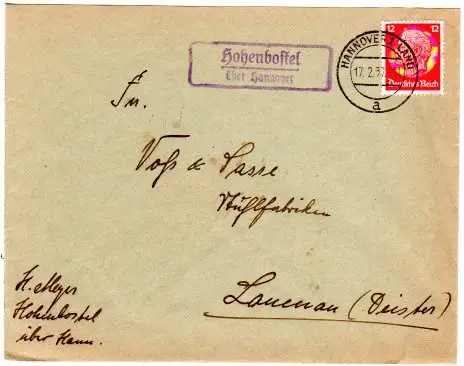 Hohenbostel
über Hannover
HANNOVER (LAND)
17.2.37
a
12 12
Deutsches Reich
Fa.
Voß & Sasse
Stuhlfabriken
Lauenau (Deister)
H. Meyer
Hohenbostel
über Hann.